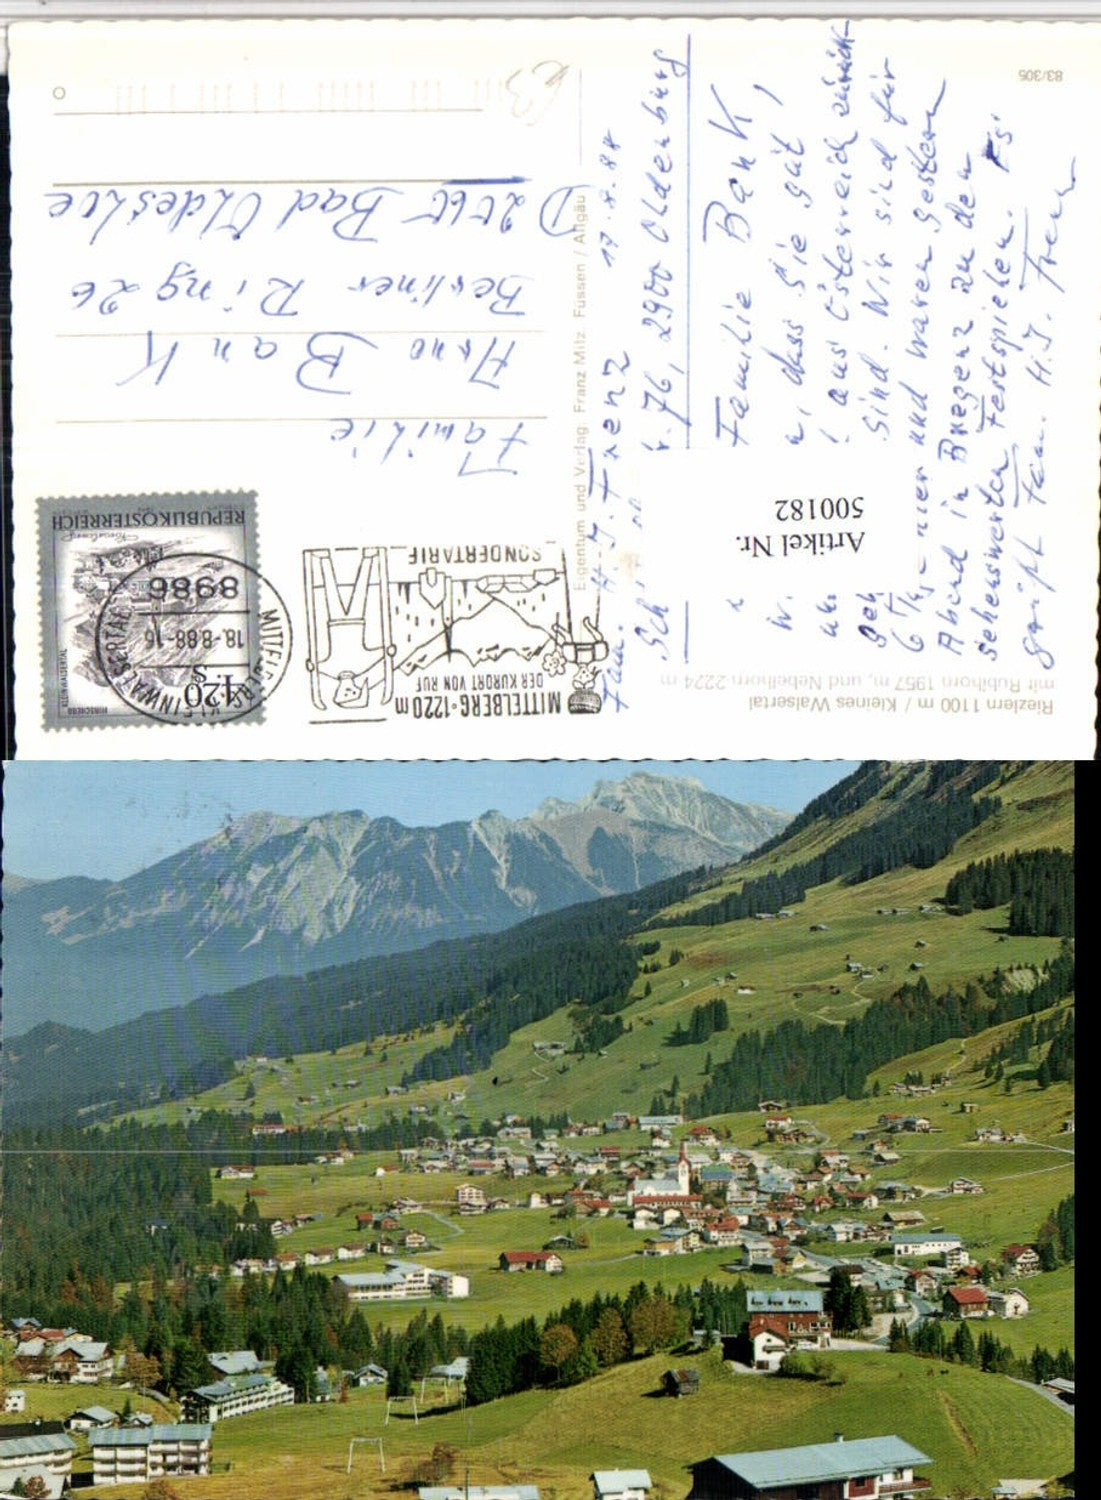 83/305
Familie Bank,
dass Sie gut
aus Österreich zurück
sind. Wir sind für
hier und waren gestern
Abend in Bregenz zu den
sehenswerten Festspielen. Es
grüßt Fam. H.J. Frenz
Fam. H.J. Frenz 17.8.88
76, 2900 Oldenburg
Riezlern 1100 m / Kleines Walsertal
mit Rubihorn 1957 m, und Nebelhorn 2224 m
Eigentum und Verlag: Franz Milz, Füssen / Allgäu
Artikel Nr.
500182
MITTELBERG · 1220 m
DER KURORT VON RUF
SONDERTARIF
MITTELBERG
18.-8.88-16
8986
KLEINWALSERTAL
REPUBLIK ÖSTERREICH
4.20
S
HIRSCHEGG
KLEINWALSERTAL
Familie
Arno Bank
Berliner Ring 26
D 2060 Bad Oldesloe